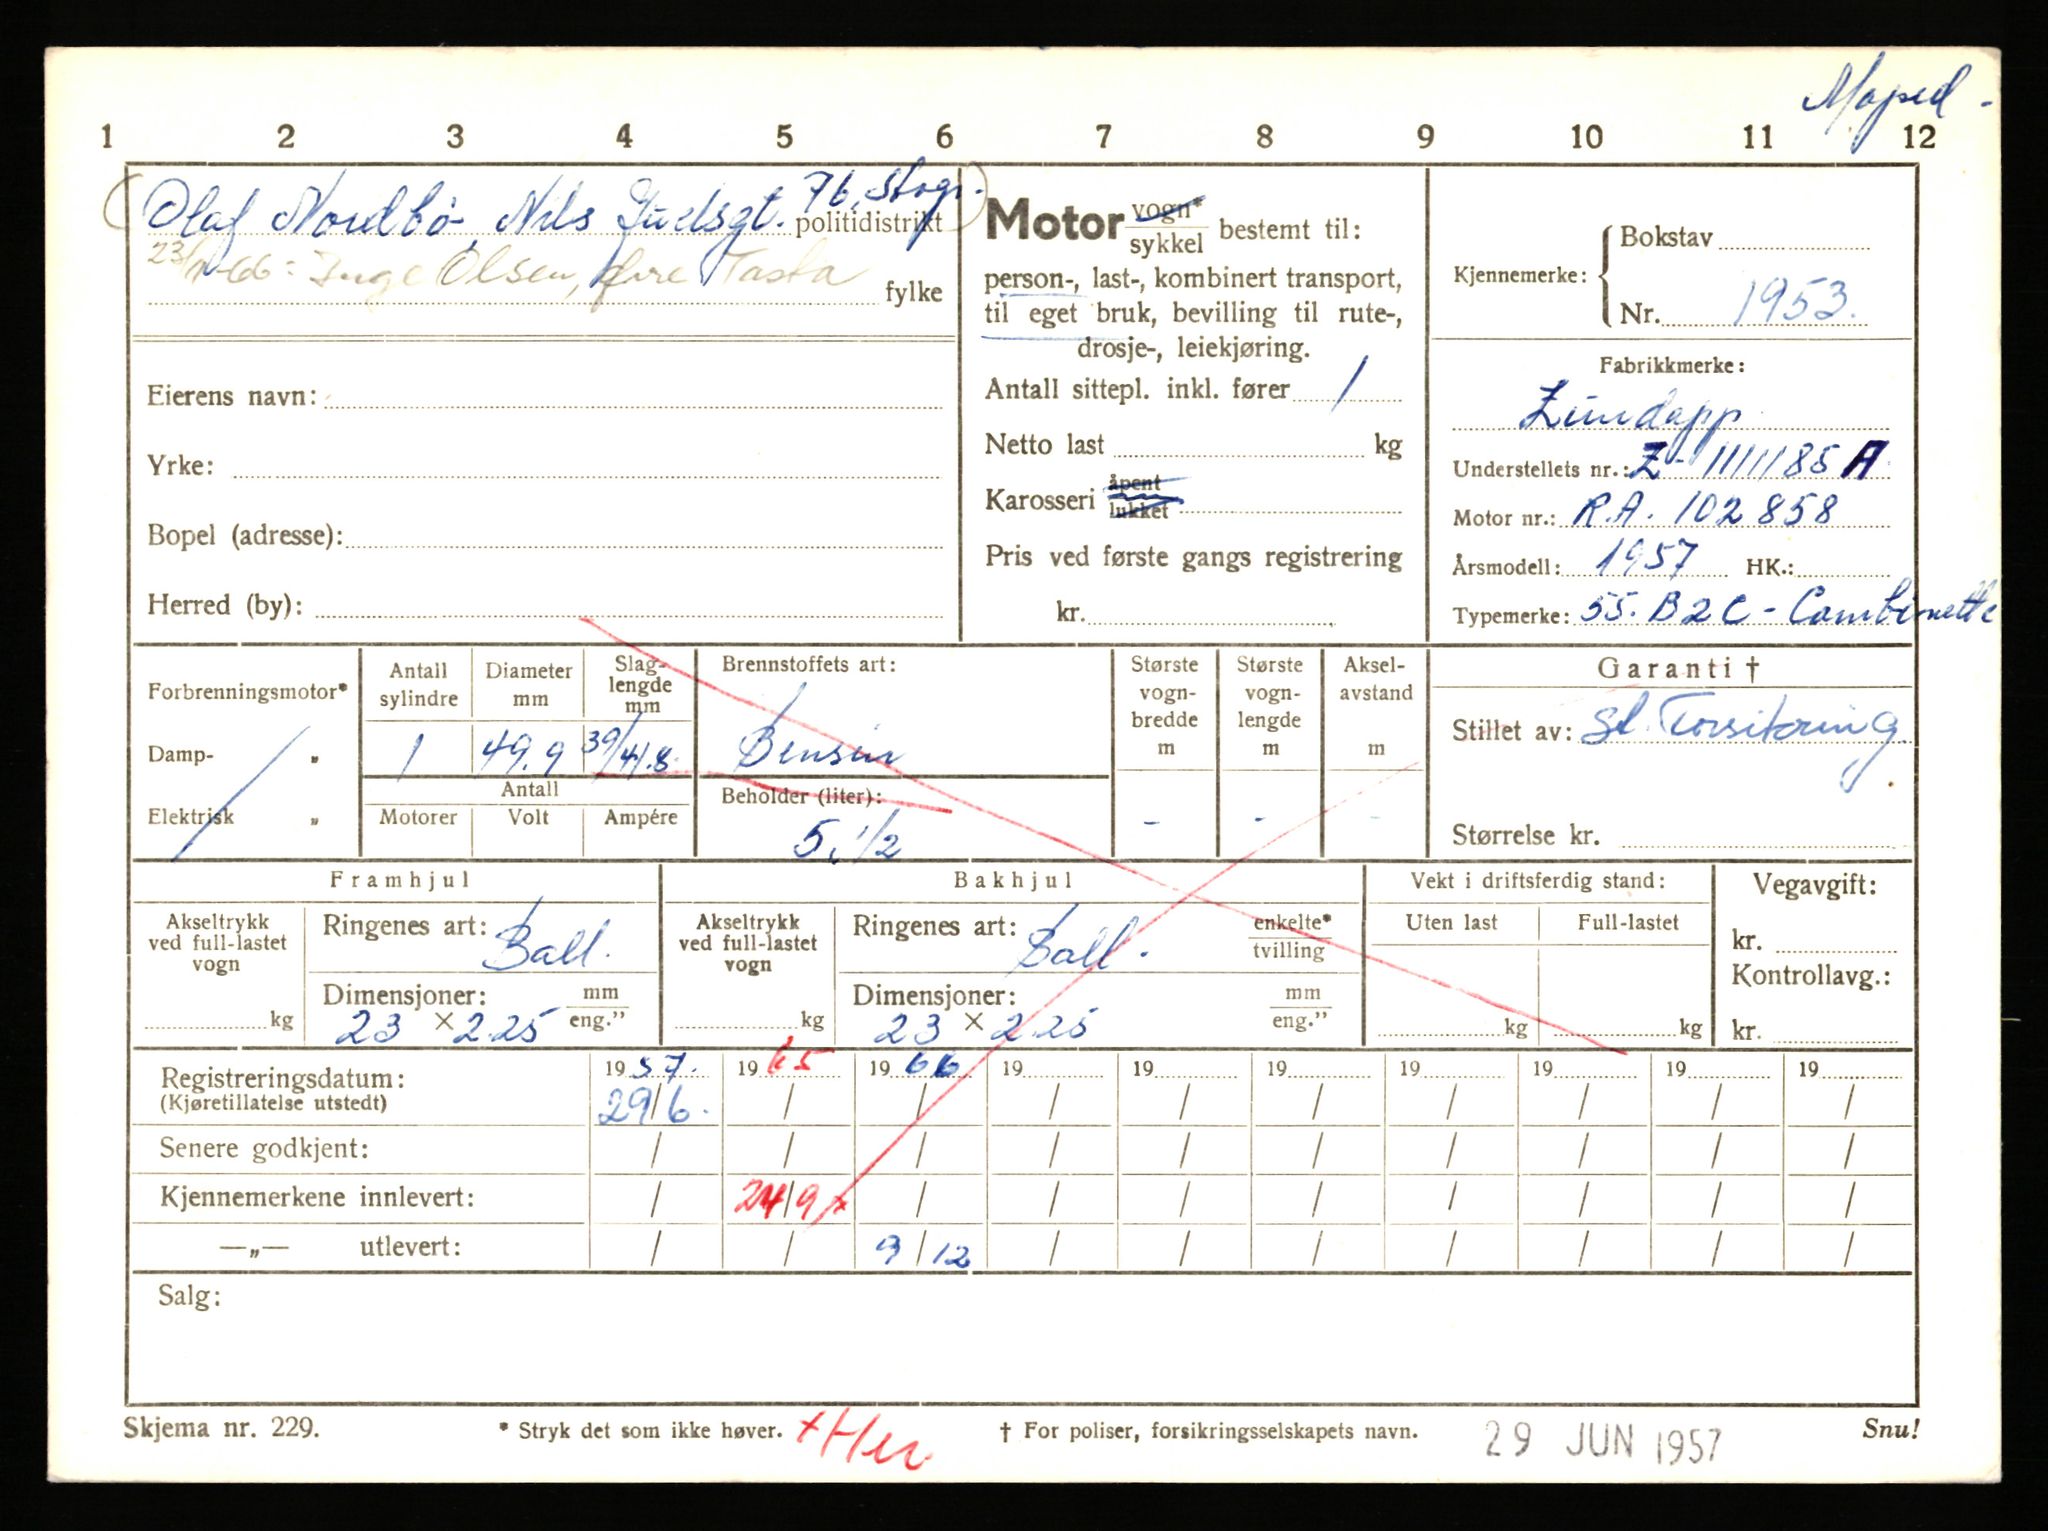 Moped -
1 2 3 4 5 6 7 8 9 10 11 12
Olaf Nordbö, Nils Juelsgt. 76, Stvgr. politidistrikt
23/12-66: Inge Olsen, øvre Tasta
fylke
Eierens navn:
Yrke:
Bopel (adresse):
Herred (by):
Motor vogn* sykkel bestemt til:
person-, last-, kombinert transport,
til eget bruk, bevilling til rute-,
drosje-, leiekjøring.
Antall sittepl. inkl. fører 1
Netto last kg
Karosseri åpent lukket
Pris ved første gangs registrering
kr.
Kjennemerke: Bokstav
Nr. 1953.
Fabrikkmerke:
Zündapp
Understellets nr.: Z - 1111185 A
Motor nr.: R.A. 102858
Årsmodell: 1957 HK.:
Typemerke: 55. B2C - Combinette
Forbrenningsmotor*
Damp- „
Elektrisk „
Antall sylindre
1
Diameter mm
49.9
Slag-lengde mm
39/41.8
Antall
Motorer Volt Ampére
Brennstoffets art:
Bensin
Beholder (liter):
5, 1/2
Største vogn-bredde m
-
Største vogn-lengde m
-
Aksel-avstand m
-
Garanti †
Stillet av: St. Forsikring
Størrelse kr.
Framhjul
Akseltrykk ved full-lastet vogn
kg
Ringenes art: Ball.
Dimensjoner: mm eng."
23 x 2.25
Bakhjul
Akseltrykk ved full-lastet vogn
kg
Ringenes art: Ball. enkelte* tvilling
Dimensjoner: mm eng."
23 x 2.25
Vekt i driftsferdig stand:
Uten last Full-lastet
kg kg
Vegavgift:
kr.
Kontrollavg.:
kr.
Registreringsdatum: 1957. 1965 1966 19 19 19 19 19 19 19
(Kjøretillatelse utstedt) 29/6. / / / / / / / / /
Senere godkjent: / / / / / / / / / /
Kjennemerkene innlevert: / 24/9 x / / / / / / / /
—„— utlevert: / / 9/12 / / / / / / /
Salg:
Skjema nr. 229. * Stryk det som ikke høver. † For poliser, forsikringsselskapets navn. 29 JUN 1957 Snu!